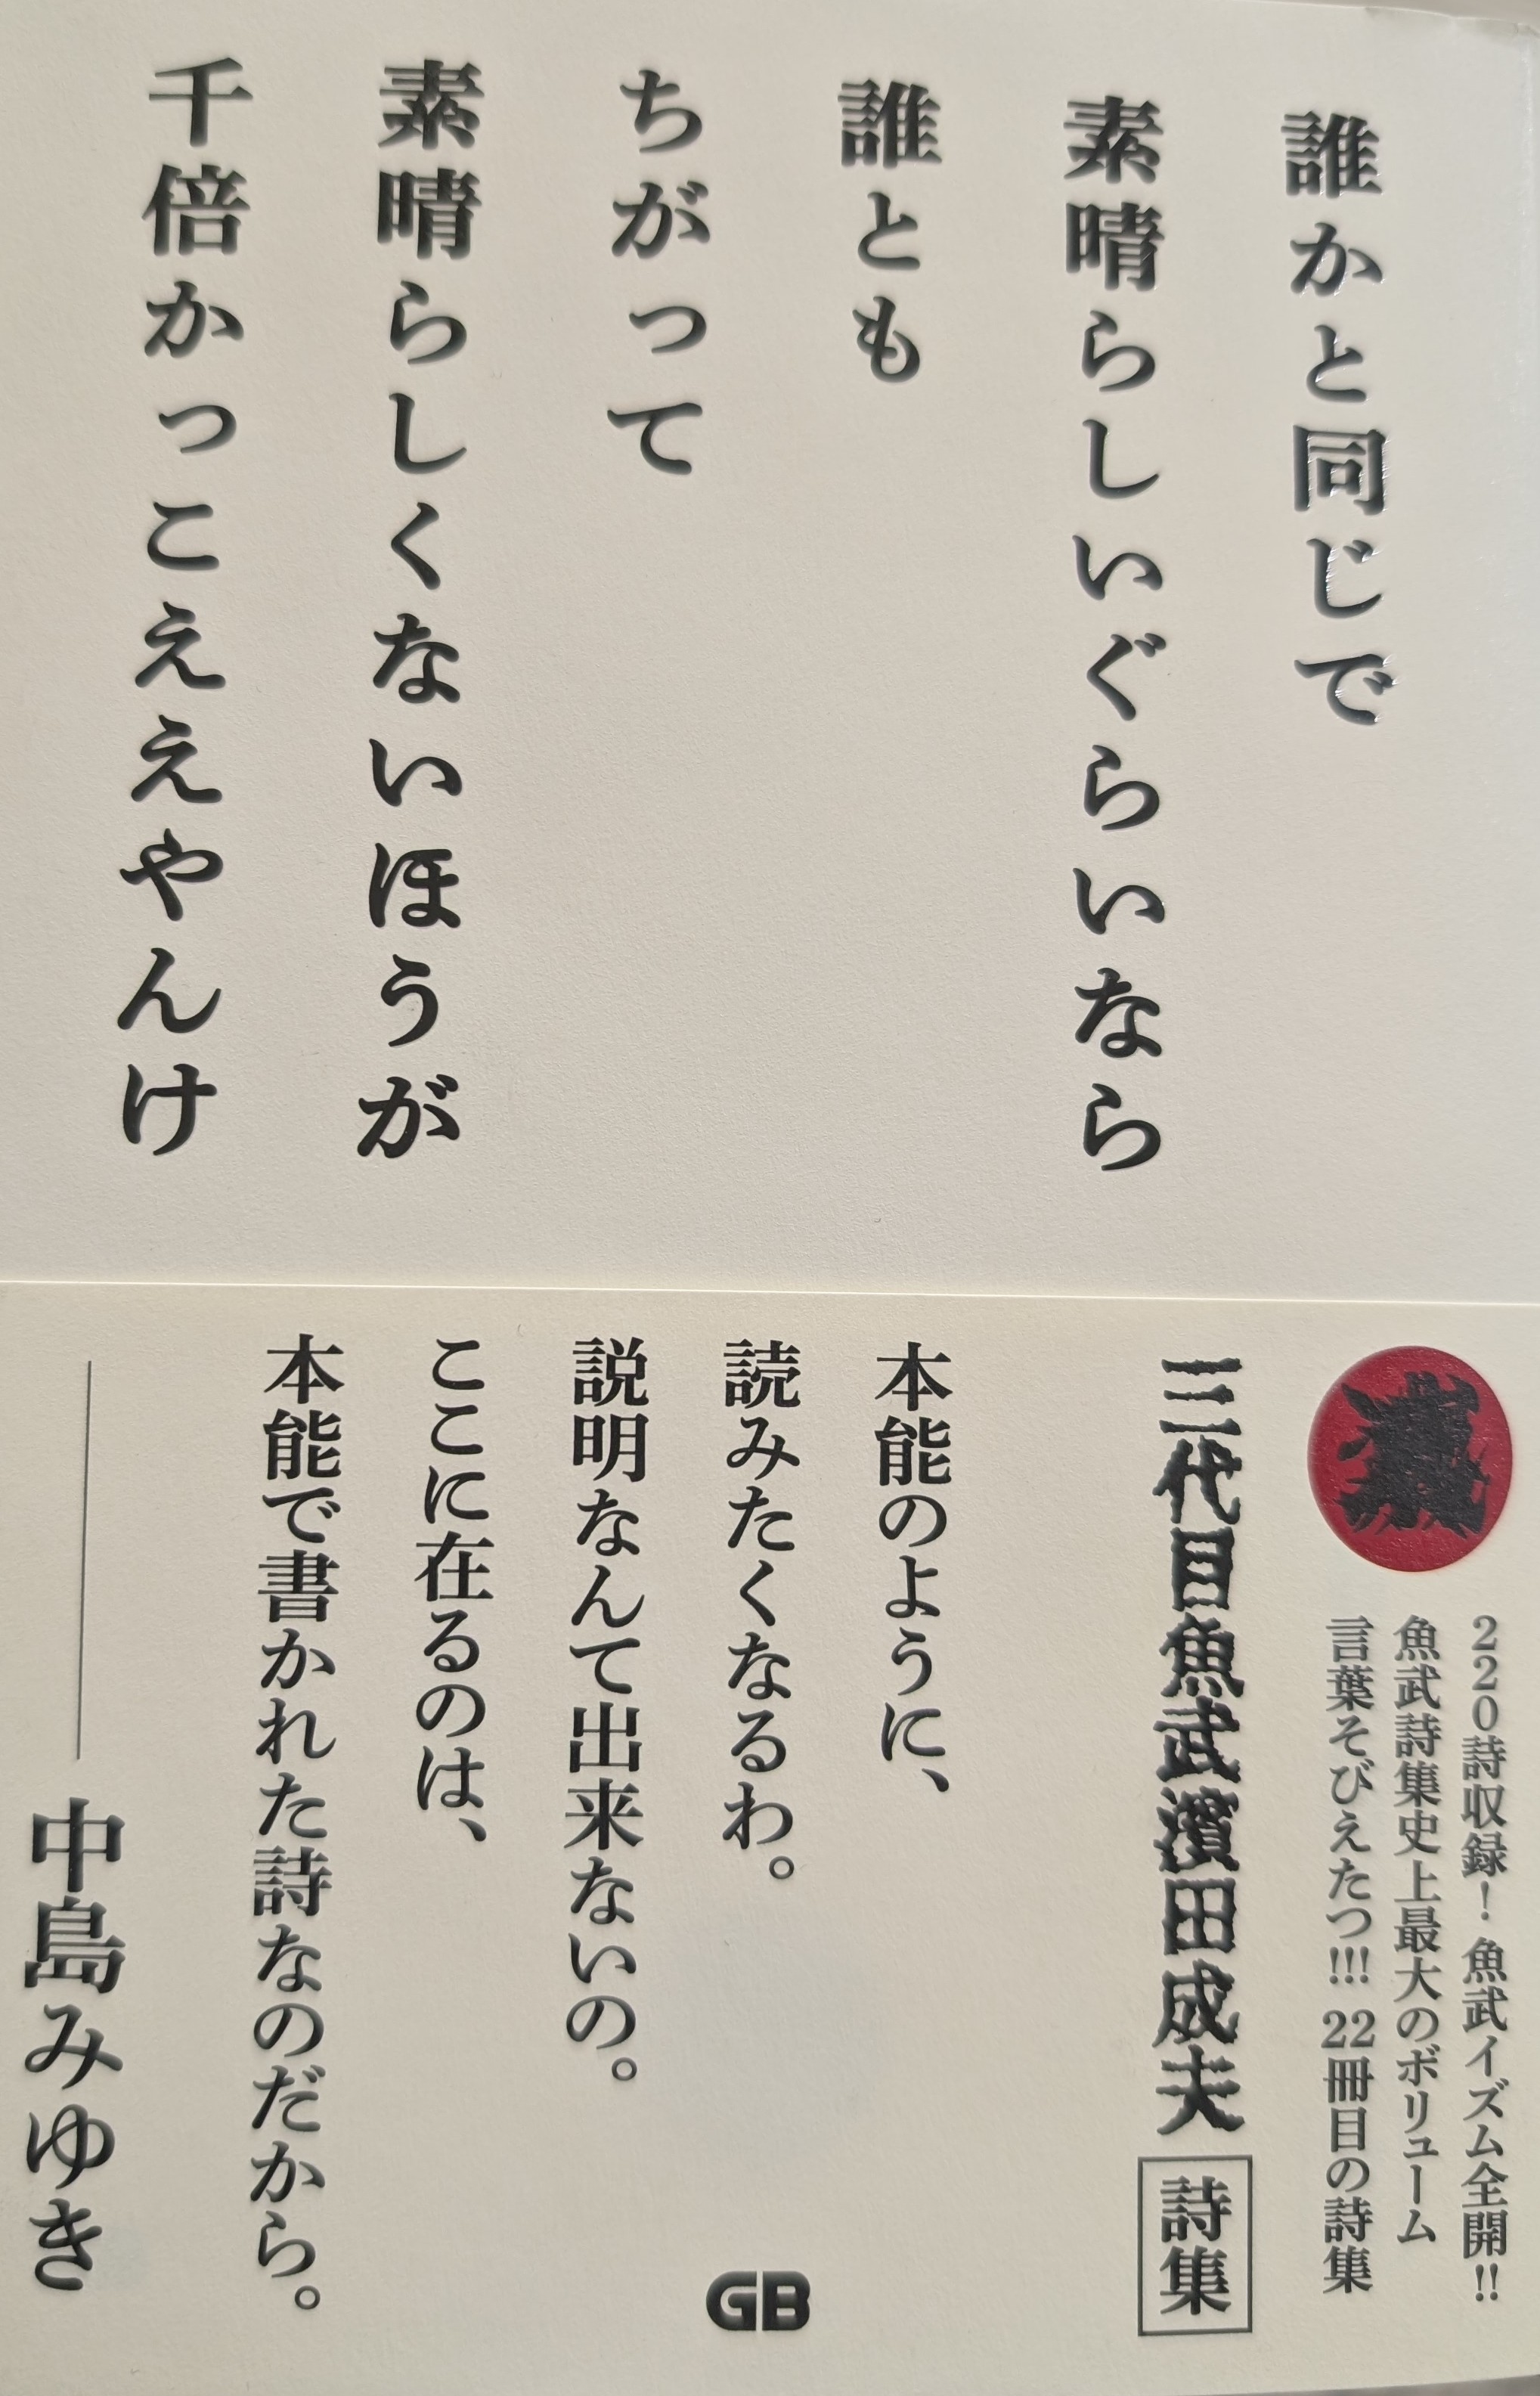 誰かと同じで
素晴らしいぐらいなら
誰とも
ちがって
素晴らしくないほうが
千倍かっこええやんけ
220詩収録！魚武イズム全開!!
魚武詩集史上最大のボリューム
言葉そびえたつ!!! 22冊目の詩集
三代目魚武濱田成夫 詩集
本能のように、
読みたくなるわ。
説明なんて出来ないの。
ここに在るのは、
本能で書かれた詩なのだから。
――中島みゆき
GB